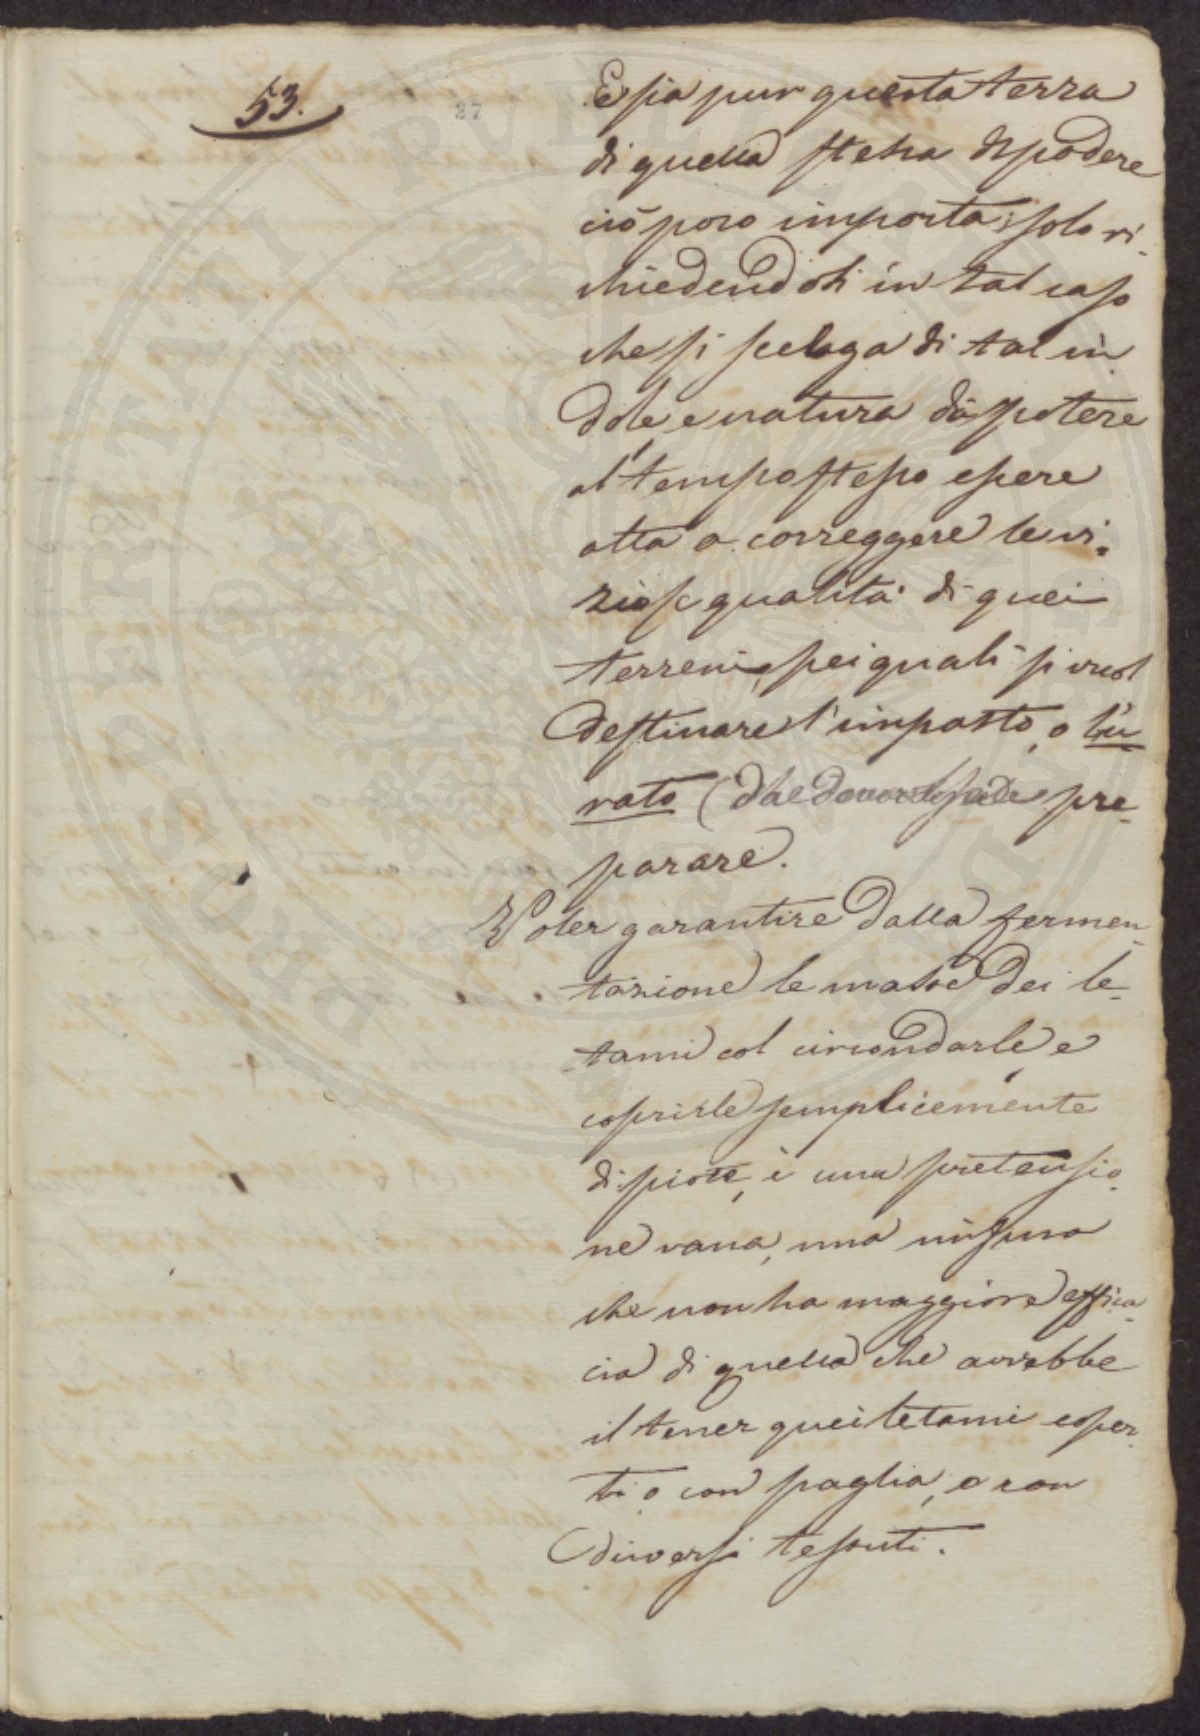 53.
27
E sia pur questa terra
di quella stessa del podere
ciò poco importa; solo ri-
chiedendosi in tal caso
che si scelga di tal in
dole e natura da potere
al tempo stesso essere
atta a correggere le vi-
ziose qualità di quei
terreni, pei quali si vuol
destinare l'impasto, o lu-
rato (che pre-
parare.
Voler garantire dalla fermen-
tazione le masse dei le-
tami col circondarle, e
coprirle semplicemente
di piote, è una pretensio-
ne vana, una misura
che non ha maggiore effica-
cia di quella che avrebbe
il tener quei letami coper-
ti o con paglia, o con
diversi tessuti.
PROSPERITATI PUBLICAE